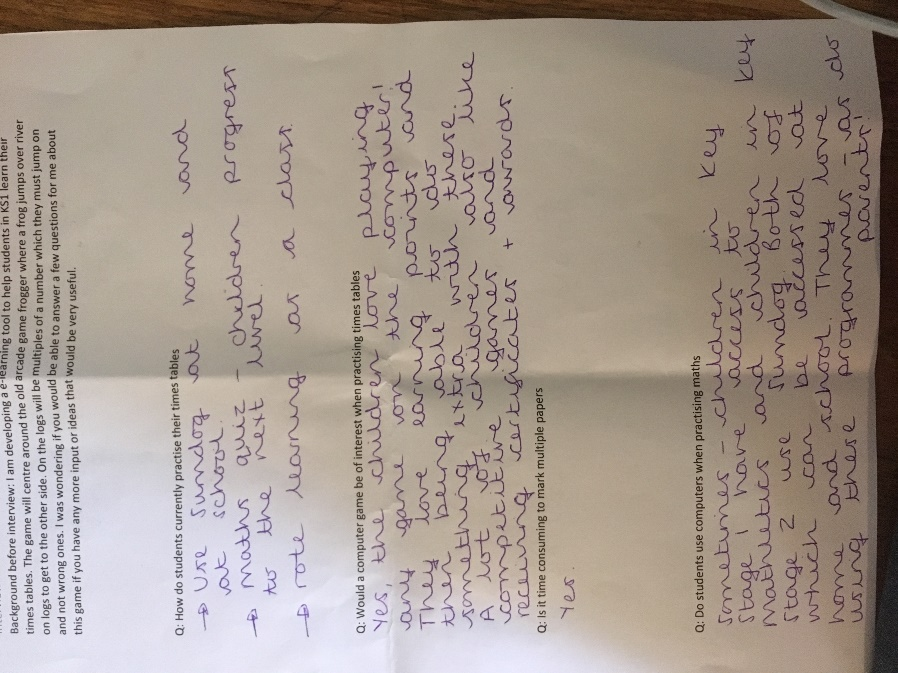 Background before interview: I am developing a e-learning tool to help students in KS1 learn their
times tables. The game will centre around the old arcade game frogger where a frog jumps over river
on logs to get to the other side. On the logs will be multiples of a number which they must jump on
and not wrong ones. I was wondering if you would be able to answer a few questions for me about
this game if you have any more input or ideas that would be very useful.
Q: How do students currently practise their times tables
→ Use Sumdog at home and
at school.
→ Maths quiz - children progress
to the next level.
→ rote learning as a class.
Q: Would a computer game be of interest when practising times tables
Yes, the children love playing
any game on the computer!
They love earning points and
then being able to do
something extra with these.
A lot of children also like
competitive games and
receiving certificates + awards.
Q: Is it time consuming to mark multiple papers
Yes.
Q: Do students use computers when practising maths
Sometimes - children in key
stage 1 have access to
mathletics and children in key
stage 2 use Sumdog. Both of
which can be accessed at
home and school. They love
using these programmes - as do
parents!